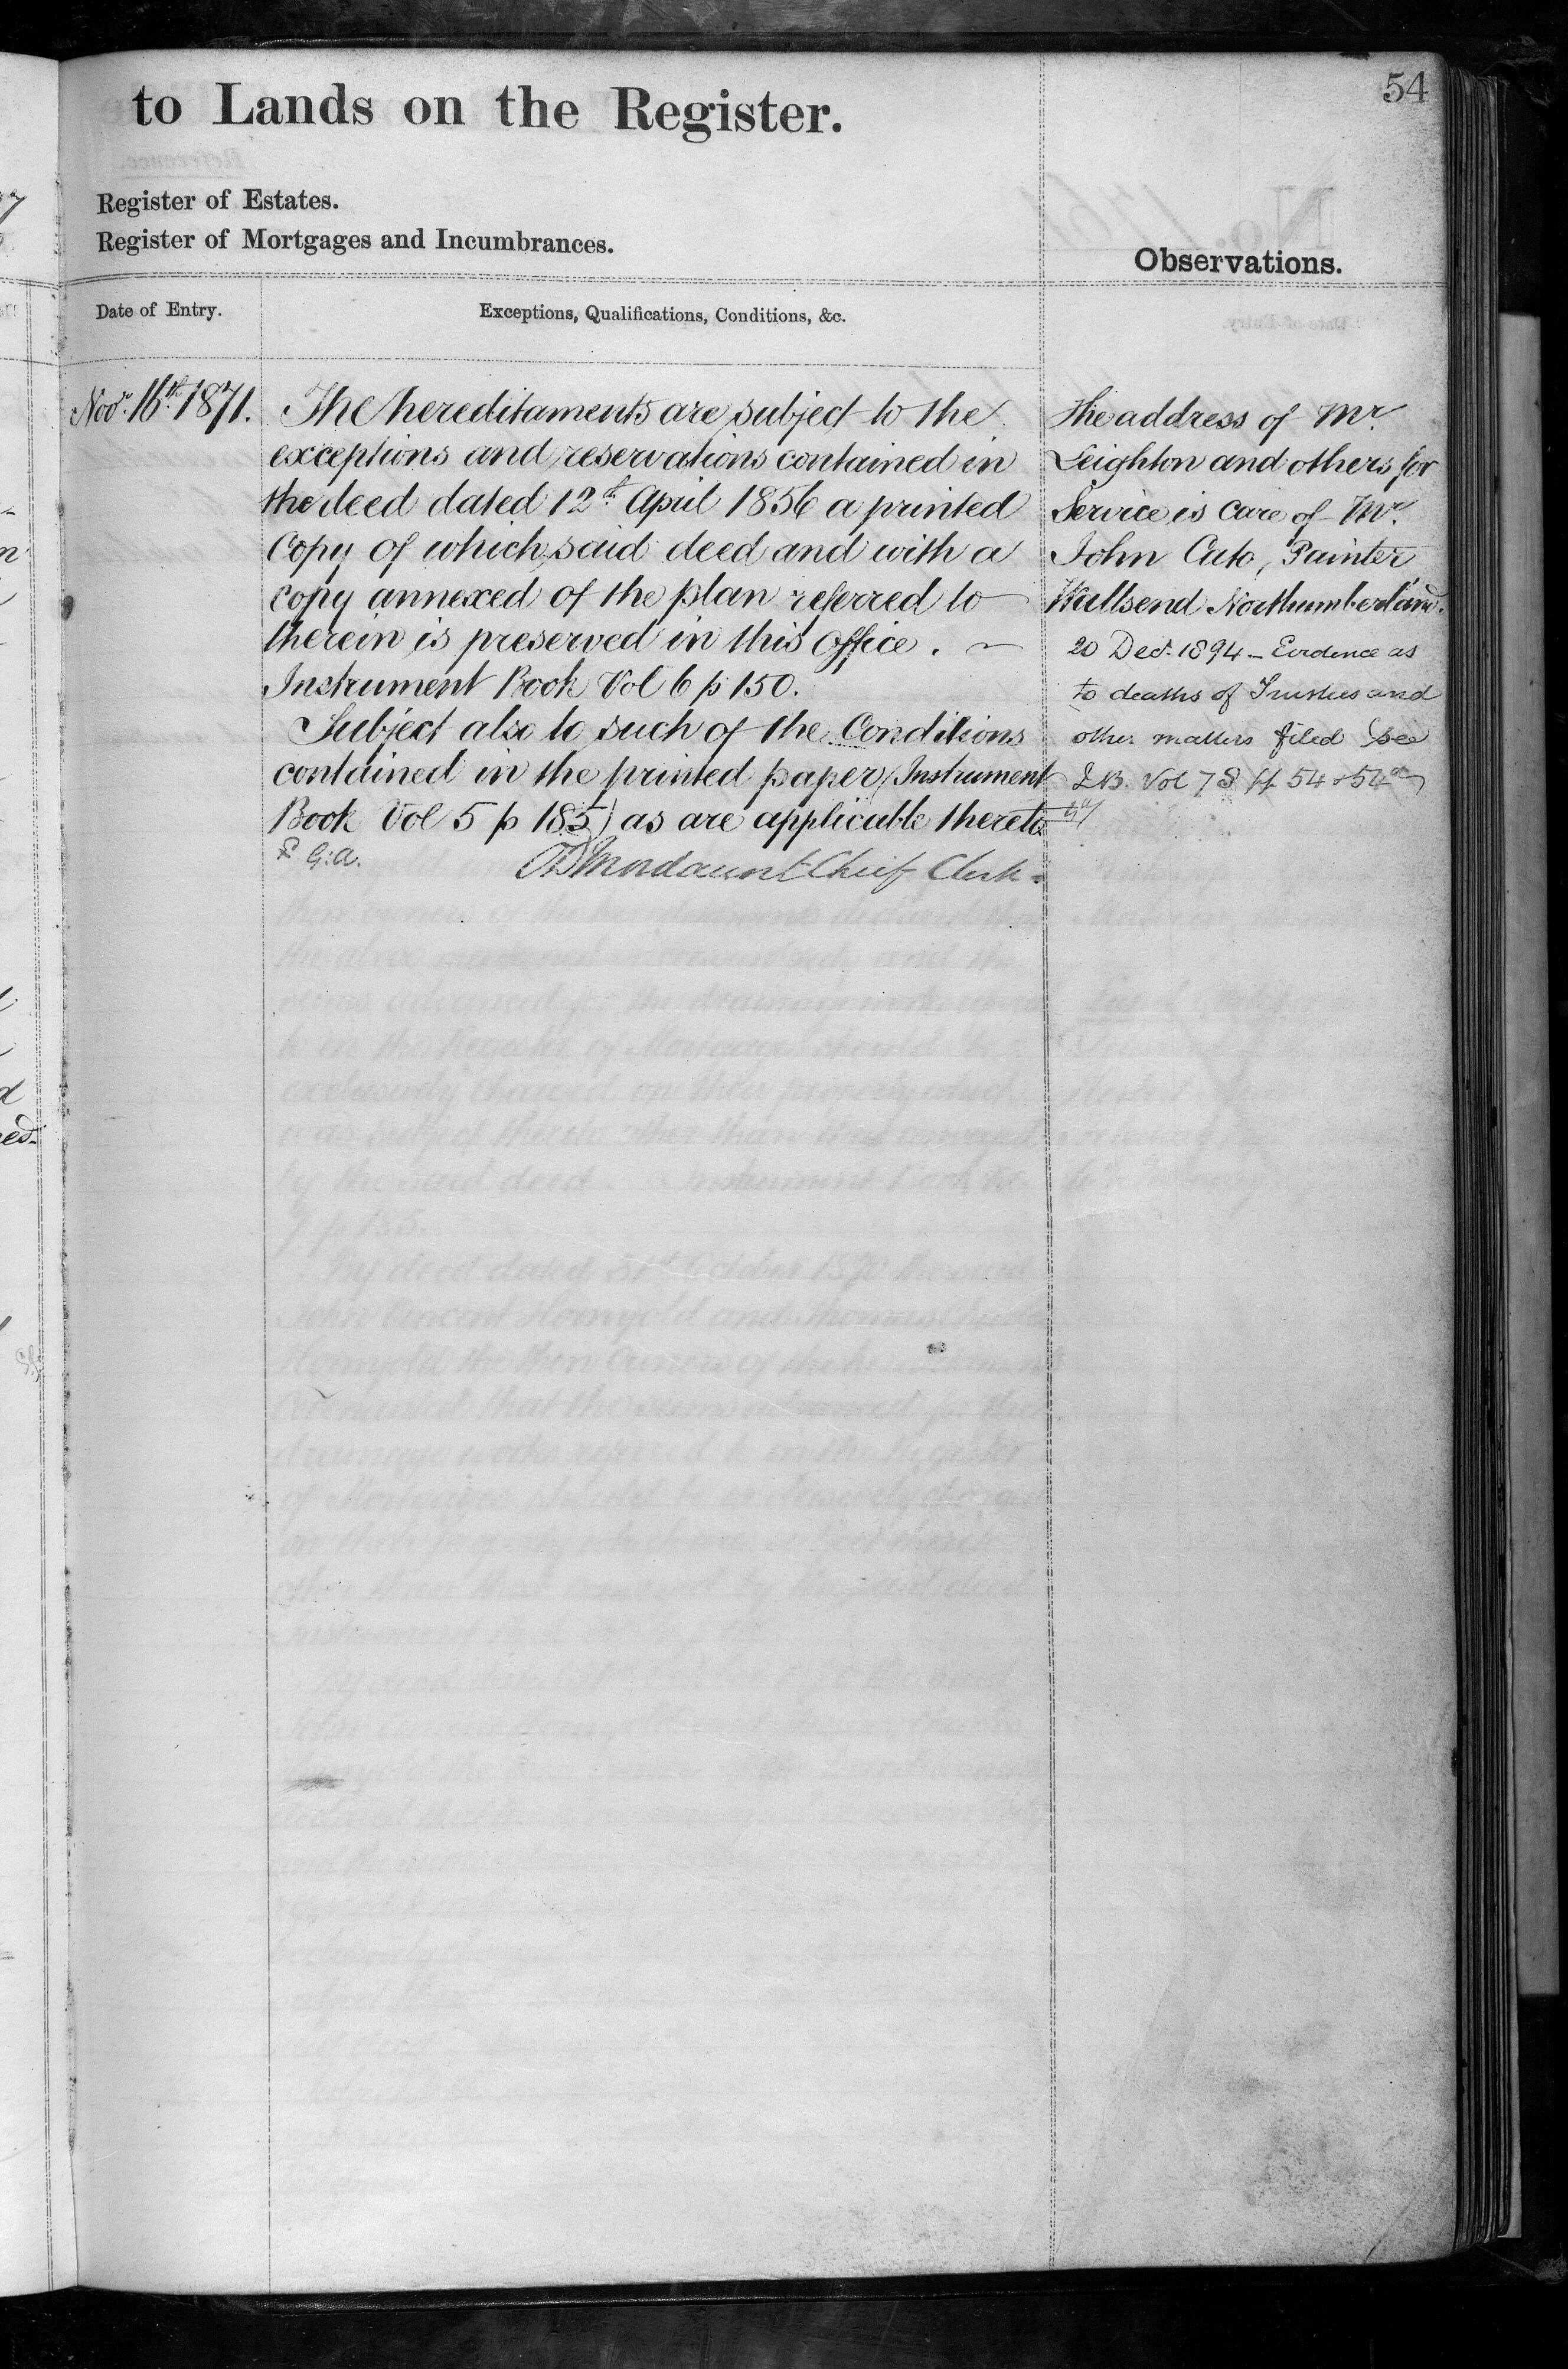 54
to Lands on the Register.
Register of Estates.
Register of Mortgages and Incumbrances.
Observations.
Date of Entry.
Exceptions, Qualifications, Conditions, &c.
Novr. 16th 1871.
The hereditaments are subject to the
exceptions and reservations contained in
the deed dated 12th April 1856 a printed
Copy of which said deed and with a
copy annexed of the plan referred to
therein is preserved in this Office. ~
Instrument Book Vol 6 p 150.
Subject also to such of the Conditions
contained in the printed paper (Instrument
Book Vol 5 p 185) as are applicable thereto
G.A.
Mordaunt Chief Clerk.
The address of Mr.
Leighton and others for
Service is care of Mr.
John Cato, Painter
Wallsend Northumberland.
20 Decr. 1894 - Evidence as
to deaths of Trustees and
other matters filed see
I.B. Vol 78 ff 54 & 54a